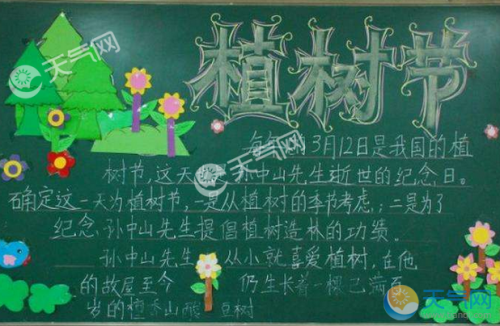 植树节
每年 3月12日是我国的植
树节,这天 孙中山先生逝世的纪念日。
确定这一天为植树节,一是从植树的季节考虑;二是为了
纪念 孙中山先生提倡植树造林的功绩。
孙中山先生 从小就喜爱植树,在他
的故居至今 仍生长着一棵已满百
岁的檀香山酸 豆树
天气网
天气网
天气网
天气网